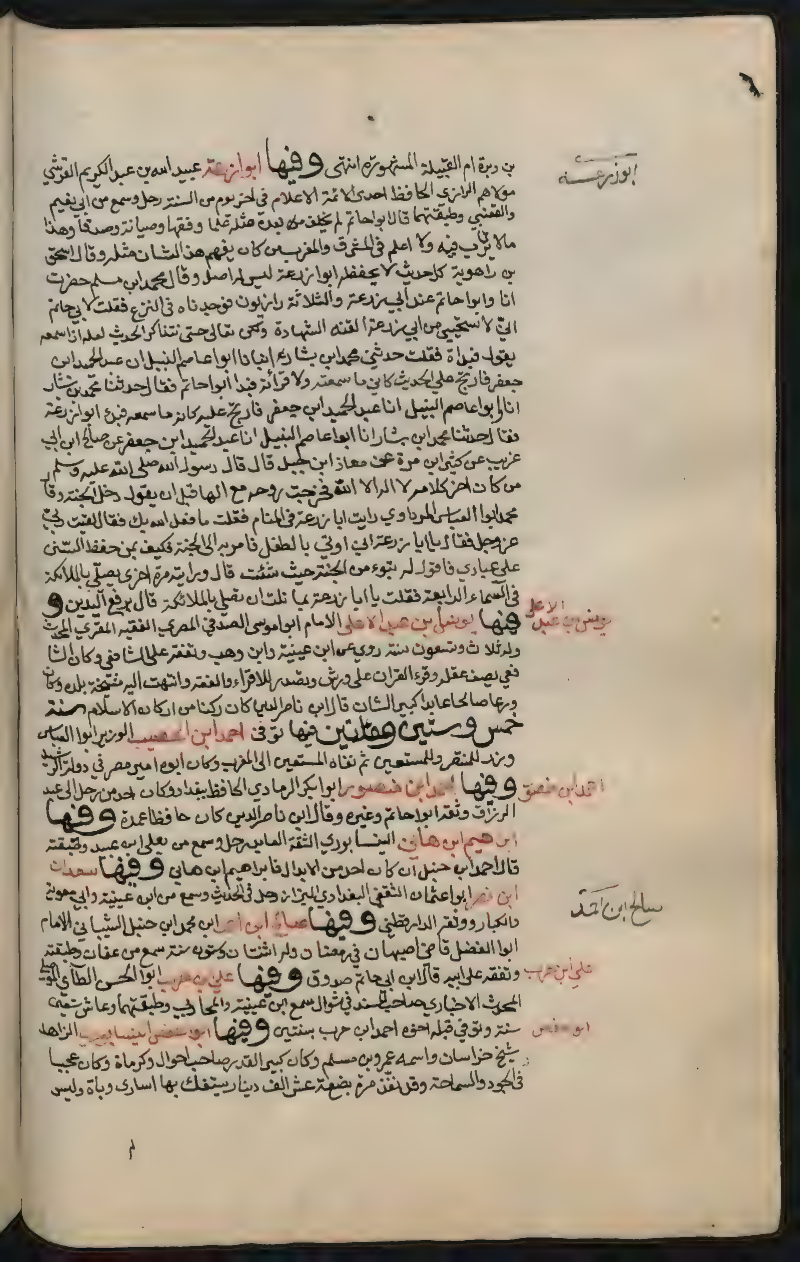 بن وبرة ام القبيلة المشهورة انتهى وفيها ابوا زرعة عبيد الله بن عبد الكريم القرشي
ابوزرعه
مولاهم الرازي الحافظ احدى الائمة الاعلام فى اخر يوم من السنة رحل وسمع من ابي نعيم
والقعنبي وطبقتهما قال ابوا حاتم لم يخلف من بعده مثله علما وفقها وصيانة وصدقا وهذا
مالا يرتاب فيه ولا اعلم فى المشرق والمغرب من كان يفهم هذ الشان مثله وقال اسحق
بن راهوية كل حديث لا يحفظه ابوا زرعة ليس له اصل وقال محمد ابن مسلم حضرت
انا وابوا حاتم عند ابي زرعة والثلاثة رازيون فوجدناه فى النزع فقلت لابي حاتم
اني لاستحيي من ابي زرعة القنه الشهادة ولكن تعالى حتى نتذاكر الحديث لعله اذا سمعه
يقوله فبداة فقلت حدثني محمد ابن بشار انبانا ابوا عاصم النبيل ان عبد الحميد ابن
جعفر فارتج علي الحديث كاني ما سمعته ولا قراته فبدا ابوا حاتم فقال حدثنا محمد بن بشار
انا ابوا عاصم النبيل انا عبد الحميد ابن جعفر فارتج عليه كانه ما سمعه فبدء ابوا زرعة
فقال حدثنا محمد ابن بشار انا ابوا عاصم النبيل انا عبد الحميد ابن جعفر عن صالح ابن ابي
عريب عن كثير ابن مرة عن معاذ ابن جبل قال قال رسول الله صلى الله عليه وسلم
من كان اخر كلامه لا اله الا الله فخرجت روحه مع الها قبل ان يقول دخل الجنة وقا
محمد ابوا العباس المرداوي رايت ابا زرعة فى المنام فقلت ما فعل الله بك فقال لقيت ربي
عز وجل فقال يا ابا زرعة اني اوتي بالطفل فامر به الى الجنة فكيف بمن حفظ السنن
على عبادي فاقول له تبوء من الجنة حيث شئت قال ورايته مرة اخرى يصلي بالملائكة
فى السماء الرابعة فقلت يا ابا زرعة بما نلت ان تصلي بالملائكة قال برفع اليدين و
فيها يونس بن عبد الاعلى الامام ابوا موسى الصدفي المصري الفقيه المقري المحدث
يونس بن عبد الاعلى
وله ثلاث وتسعون سنة روي عن ابن عيينة وابن وهب وتفقه على الشافعي وكان الشا
فعي يصف عقله وقرء القران على ورش وتصدر للاقراء والفقه وانتهت اليه مشيخة بلده وكان
ورعا صالحا عابدا كبير الشان قال ابن ناصر الدين كان ركنا من اركان الاسلام سنة
خمس وستين ومائتين فيها توفى احمد ابن الخصيب الوزير ابوا العباس
وزر للمنتصر وللمستعين ثم نفاه المستعين الى المغرب وكان ابوه امير مصر في دولة الرشيد
وفيها احمد ابن منصور ابوا بكر الرمادي الحافظ ببغداد وكان احد من رحل الى عبد
احمد ابن منصور
الرزاق وثقه ابوا حاتم وغيره وقال ابن ناصر الدين كان حافظا عمدة وفيها
ابرهيم ابن هاني النيسابوري الثقة العابد رحل وسمع من يعلى ابن عبيد وطبقته
قال احمد ابن حنبل ان كان احد من الابدال فابراهيم ابن هاني وفيها سعدان
ابن نصر ابوا عثمان الثقفي البغدادي البزاز رحل فى الحديث وسمع من ابن عيينة وابي معوية
والكبار ووثقه الدارقطني وفيها صالح ابن احمد ابن محمد ابن حنبل الشيباني الامام
صالح ابن احمد
ابوا الفضل قاضي اصبهان في رمضان وله اثنتان وستون سنة سمع من عفان وطبقته
وتفقه على ابيه قال ابن ابي حاتم صدوق وفيها علي بن حرب ابوا الحسن الطائي الموصلي
علي ابن حرب
المحدث الاخباري صاحب المسند في شوال سمع ابن عيينة والمحاربي وطبقتهما وعاش تسعين
سنة وتوفى قبله اخوه احمد ابن حرب بسنتين وفيها ابو حفص النيسابوري الزاهد
ابو حفص
شيخ خراسان واسمه عمرو بن مسلم وكان كبير القدر صاحب احوال وكرماة وكان عجيبا
فى الجود والسماحة وقد نفذ مرة بضعة عشر الف دينار يستفك بها اسارى وباة وليس